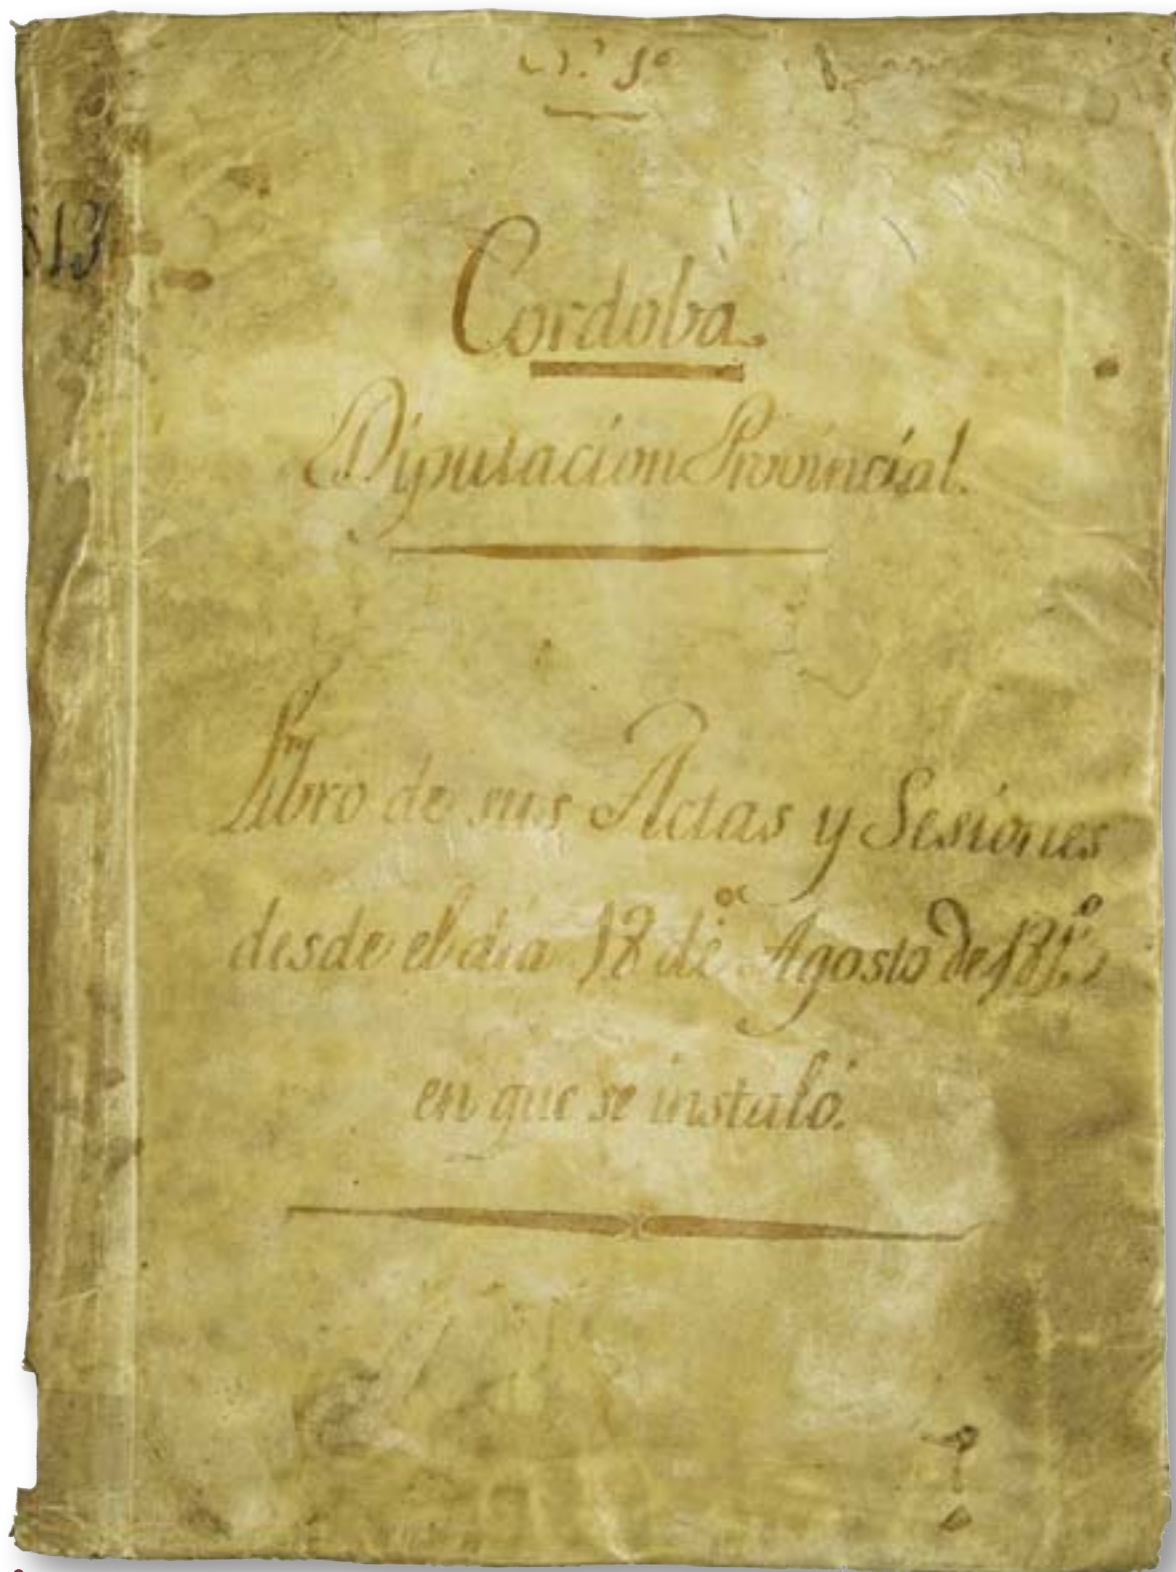 N.º 1º
813
Cordoba.
Diputacion Provincial.
Libro de sus Actas y Sesiones
desde el dia 18 de Agosto de
en que se instaló.